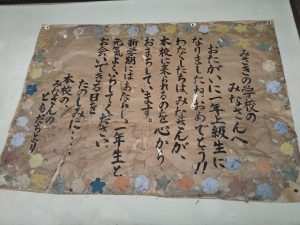 みさきの学校の
みなさんへ
おたがいに一年上級生に
なりましたね。おめでとう!!
わたしたちは、みなさんが、
本校に来られるのを心から
おまちしています。
新学期には、あたらしい一年生と
元気よくいらしてください。
お会いできる日を
たのしみに…
本校の
みなさんの
ともだちより